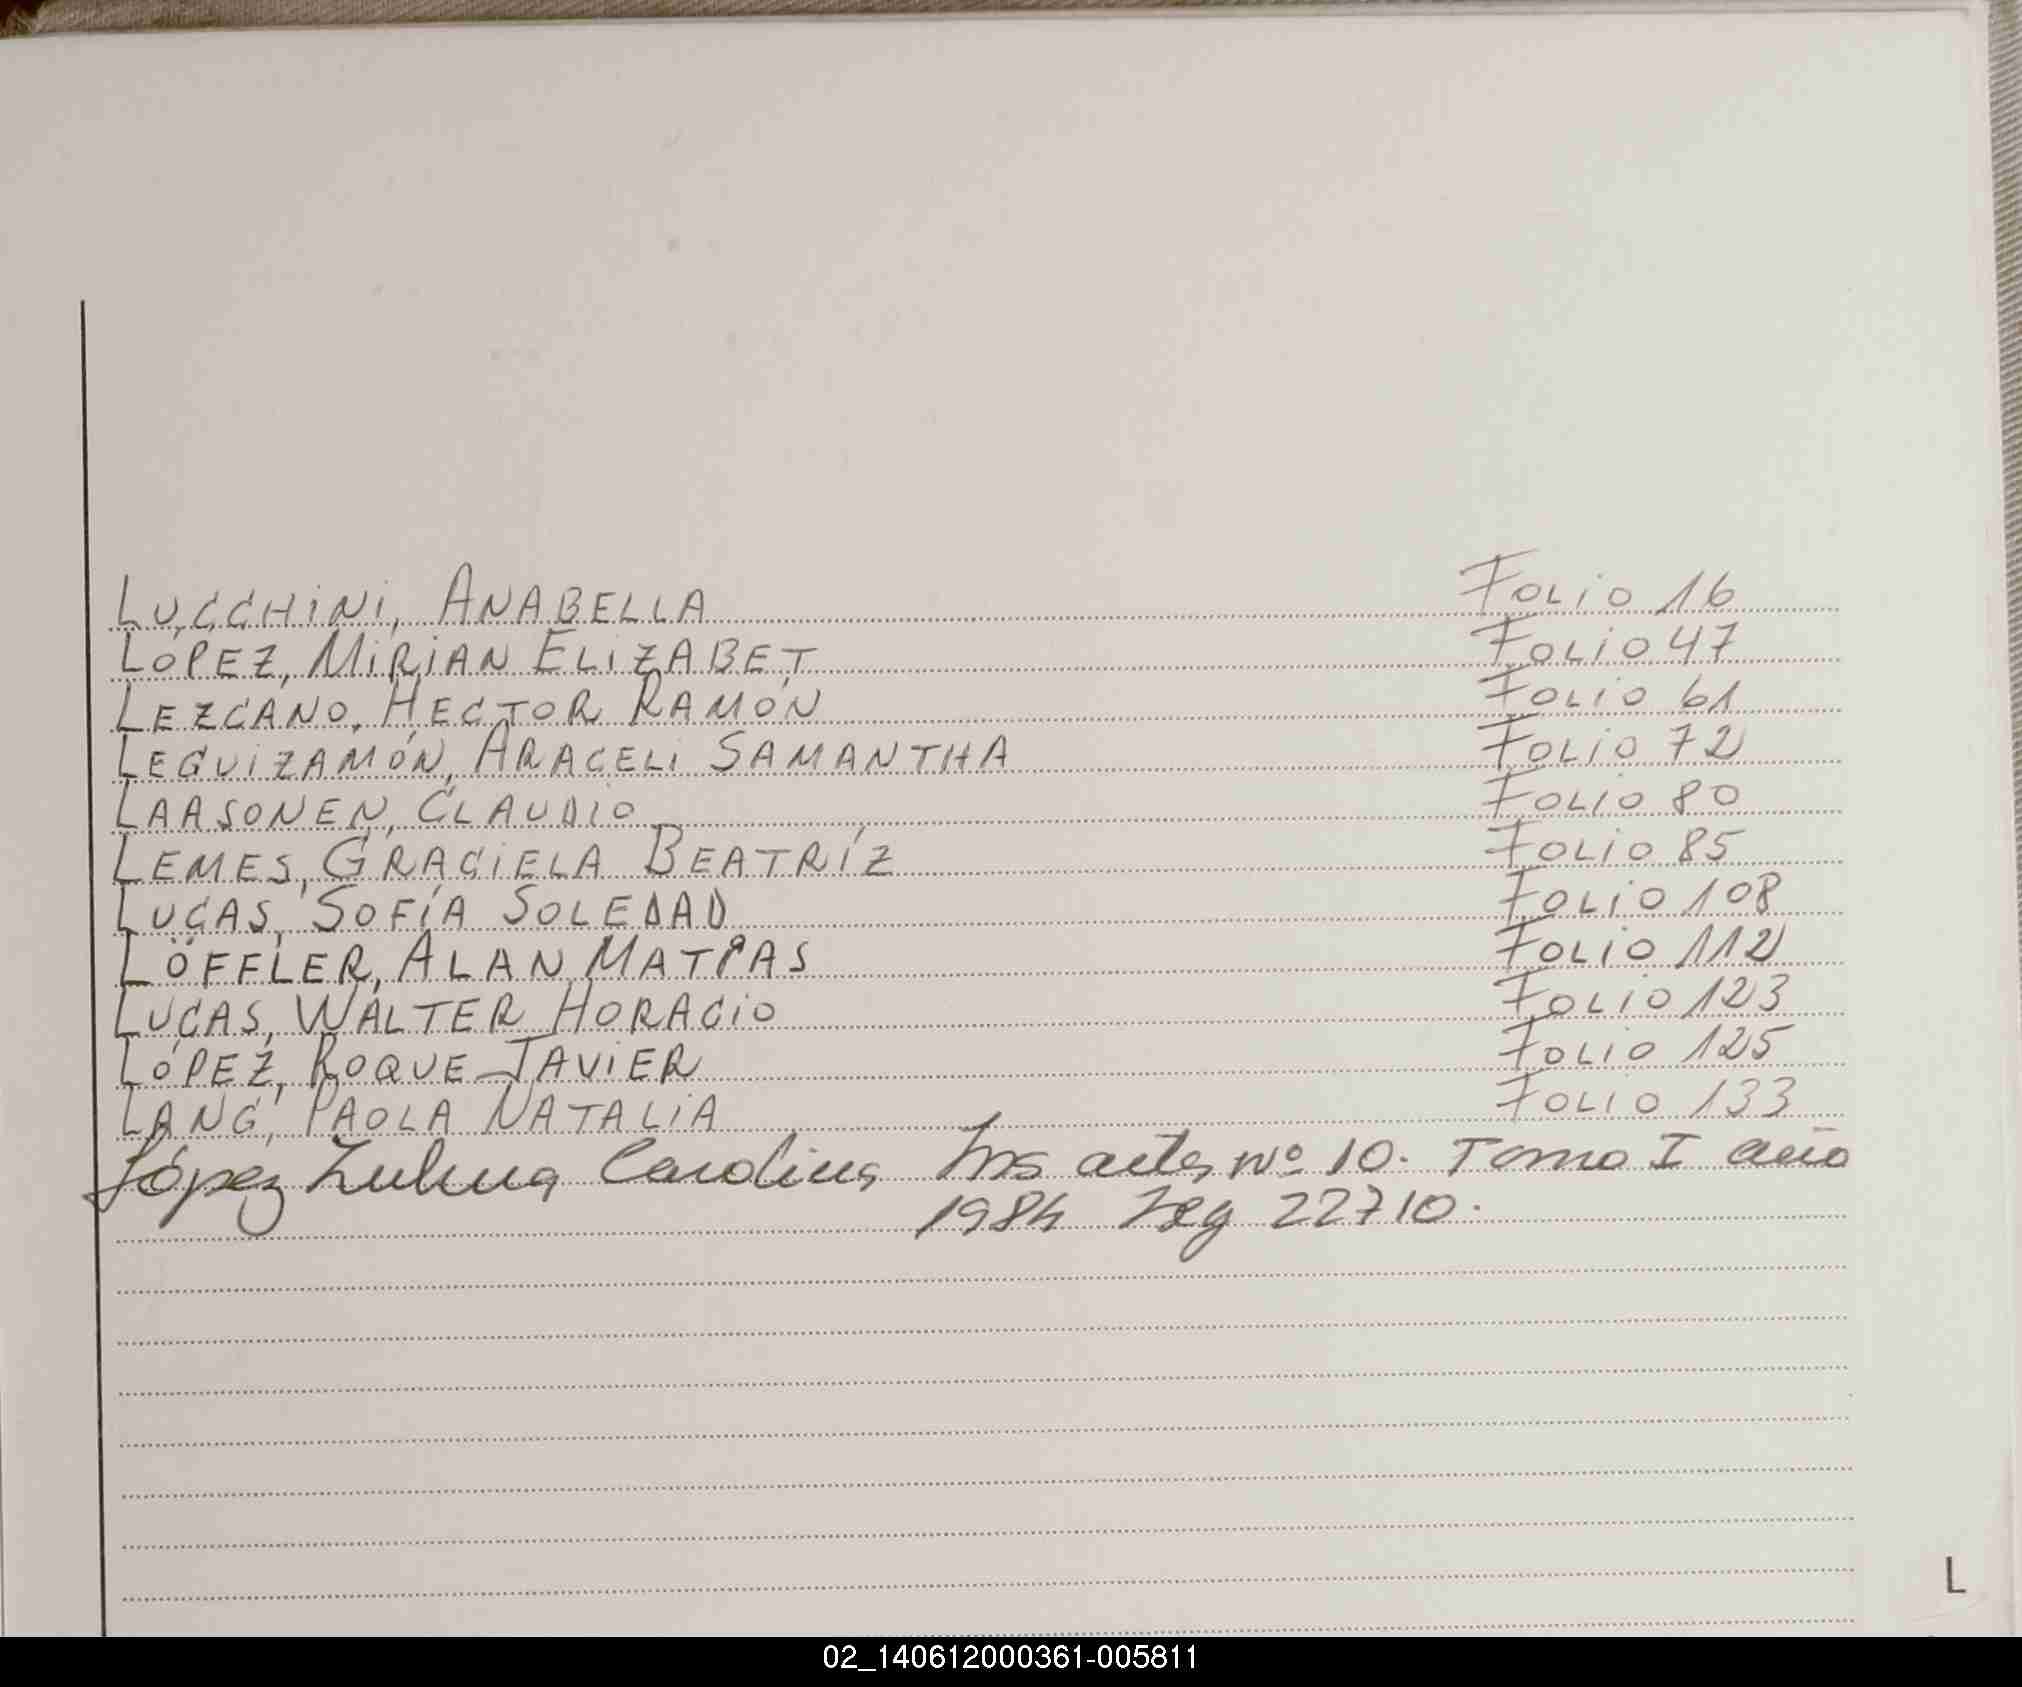 LUCCHINI, ANABELLA Folio 16
LOPEZ, MIRIAN ELIZABET Folio 47
LEZCANO, HECTOR RAMÓN Folio 61
LEGUIZAMÓN, ARACELI SAMANTHA Folio 72
LAASONEN, CLAUDIO Folio 80
LEMES, GRACIELA BEATRÍZ Folio 85
LUCAS, SOFÍA SOLEDAD Folio 108
LÖFFLER, ALAN MATÍAS Folio 112
LUCAS, WALTER HORACIO Folio 123
LÓPEZ, ROQUE JAVIER Folio 125
LANG, PAOLA NATALIA Folio 133
López Zulma Carolina Ins acta Nº 10. Tomo I año
1984 Leg 22710.
L
02_140612000361-005811